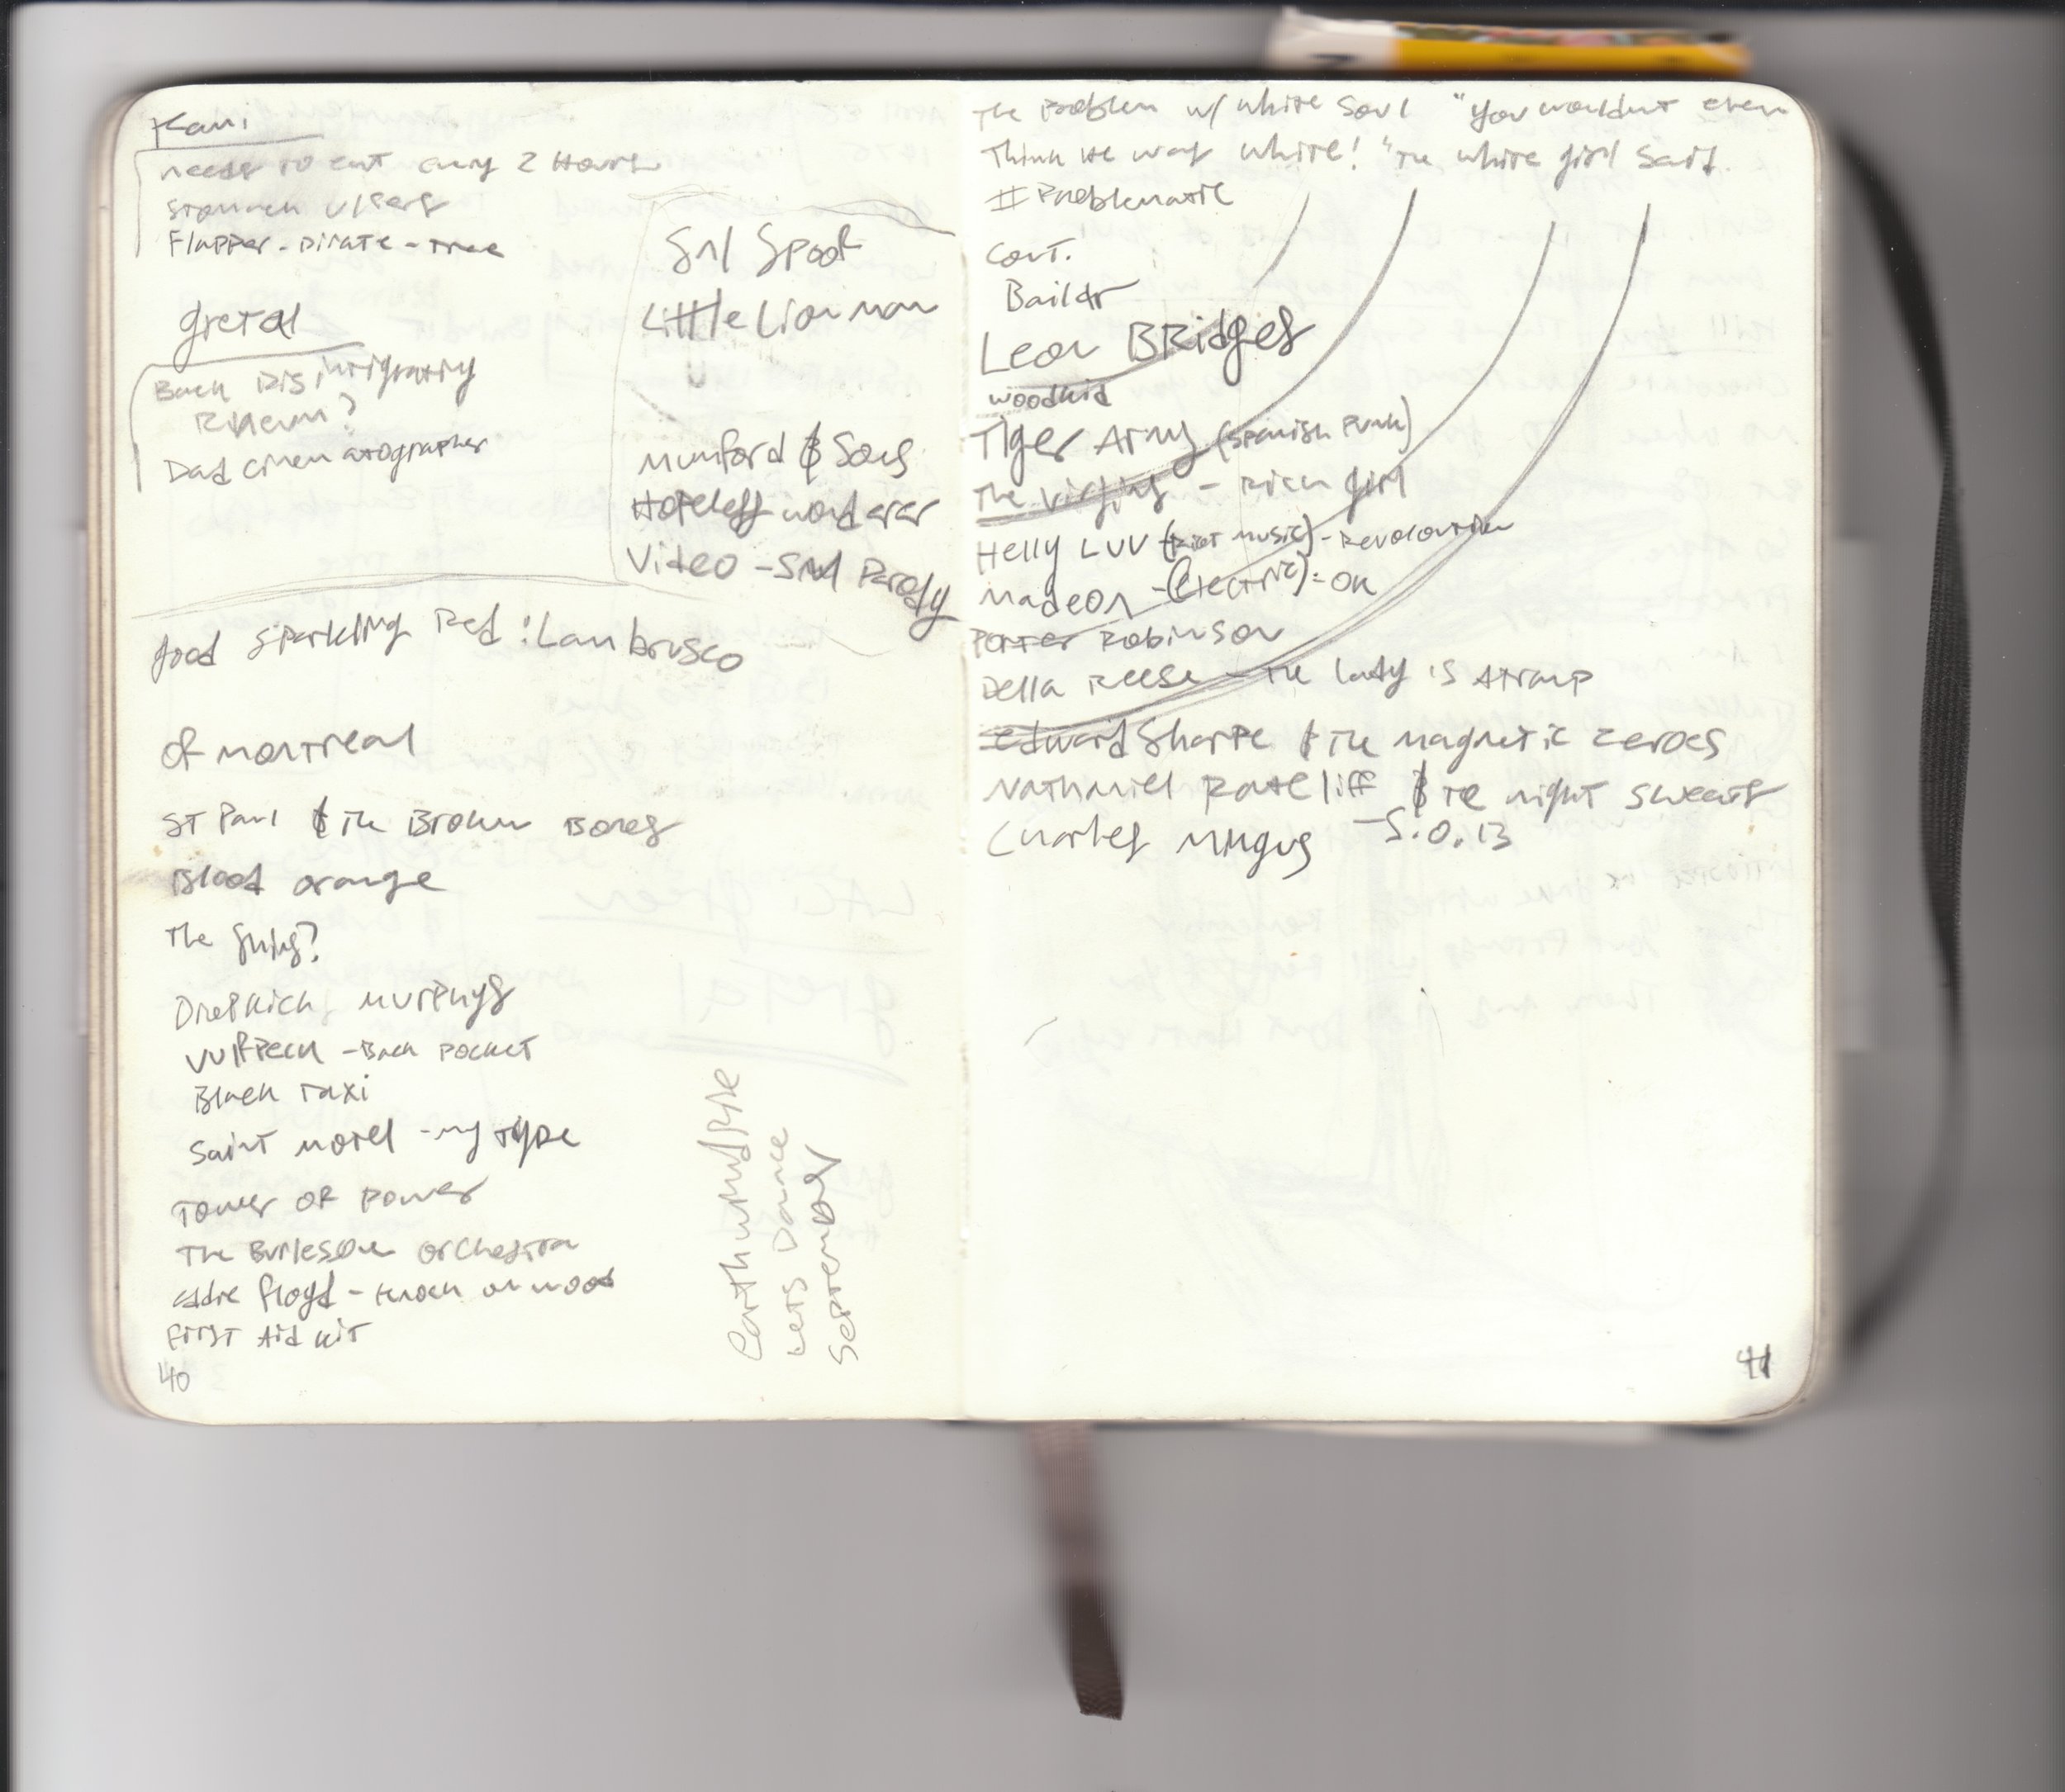 Kani
needs to eat every 2 Hours
stomach ulsers
Flapper - Pirate - Tree
gretal
Back Disintigrating
Rheum?
Dad cinematographer
Snl Spoof
Little Lion man
Mumford & Sons
Hopeless wonderer
Video - SNL Parody
good sparkling Red : Lambrusco
of montreal
ST Paul & the Broken Bones
Blood orange
The
Murphys
Vulfpeck - Back Pocket
Black Taxi
Saint motel - my type
Tower of Power
The Burlesque orchestra
eddie floyd - knock on wood
First Aid kit
40
Earthwindfire
Lets Dance
September
The Problem w/ white Soul "You wouldnt even
Think He was white!" The white girl said.
# Problematic
Cont.
Leon Bridges
woodkid
Tiger Army (Spanish Punk)
The Virgins - Rich girl
Helly LUV (Riot music) - Revolution
Madeon - (Electric) = OK
Porter Robinson
Della Reese - The lady is a tramp
edward Sharpe & the magnetic zeroes
Nathaniel Rateliff & the night sweats
- S.O.B
Charles Mingus
41